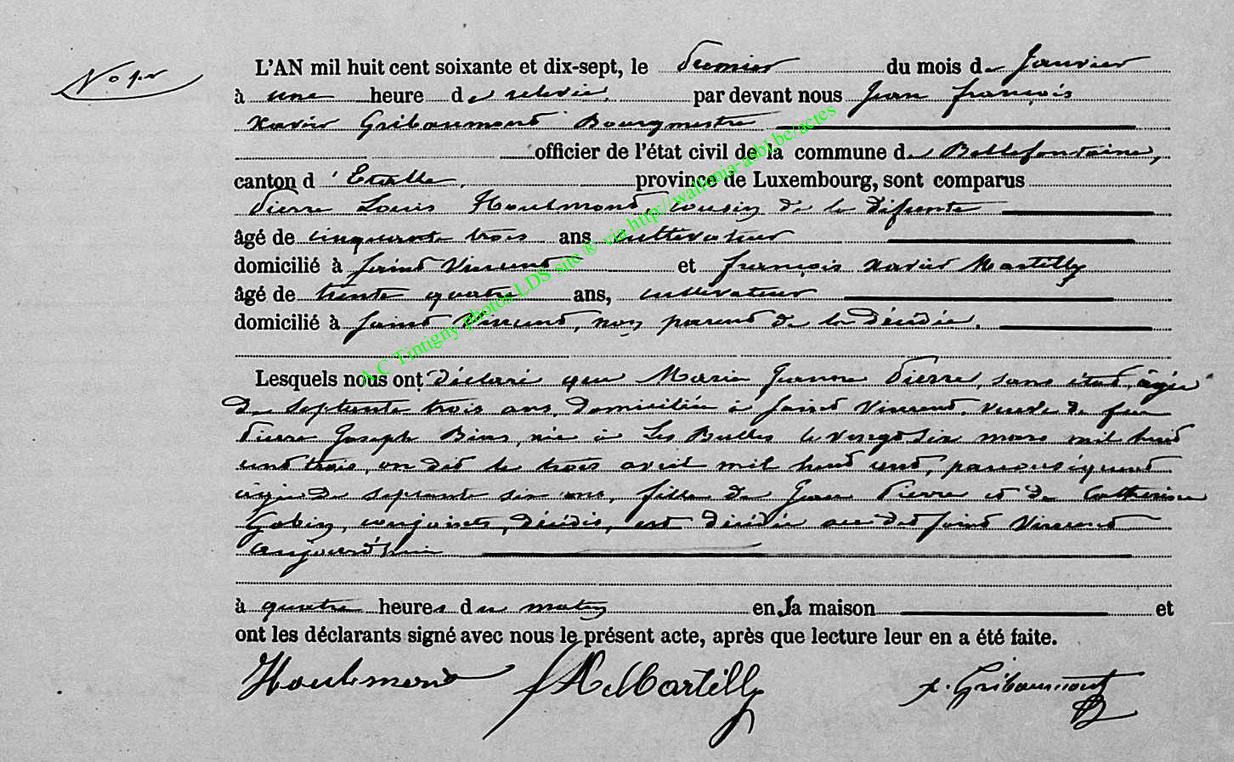 N° 1er
L'AN mil huit cent soixante et dix-sept, le premier du mois de Janvier
à une heure de relevée, par devant nous Jean François
Xavier Gribaumont Bourgmestre
officier de l'état civil de la commune de Bellefontaine,
canton d'Etalle, province de Luxembourg, sont comparus
Pierre Louis Houlmond, cousin de la défunte
âgé de cinquante trois ans cultivateur
domicilié à Saint Vincent et François Xavier Martilly
âgé de trente quatre ans, cultivateur
domicilié à Saint Vincent, non parent de la décédée.
A.C Tintigny photos LDS site ® via http://wallonia-asbl.be/actes
Lesquels nous ont déclaré que Marie Jeanne Pierre, sans état, âgée
de septante trois ans, domiciliée à Saint Vincent, veuve de feu
Pierre Joseph Bins, née à Les Bulles le vingt six mars mil huit
cent trois, on dit le trois avril mil huit cent, par conséquent
âgée de septante six ans, fille de Jean Pierre et de Catherine
Gobin, conjoints, décédés, est décédée au dit Saint Vincent
aujourd'hui
à quatre heures du matin en sa maison et
ont les déclarants signé avec nous le présent acte, après que lecture leur en a été faite.
Houlmond Martilly x. Gribaumont